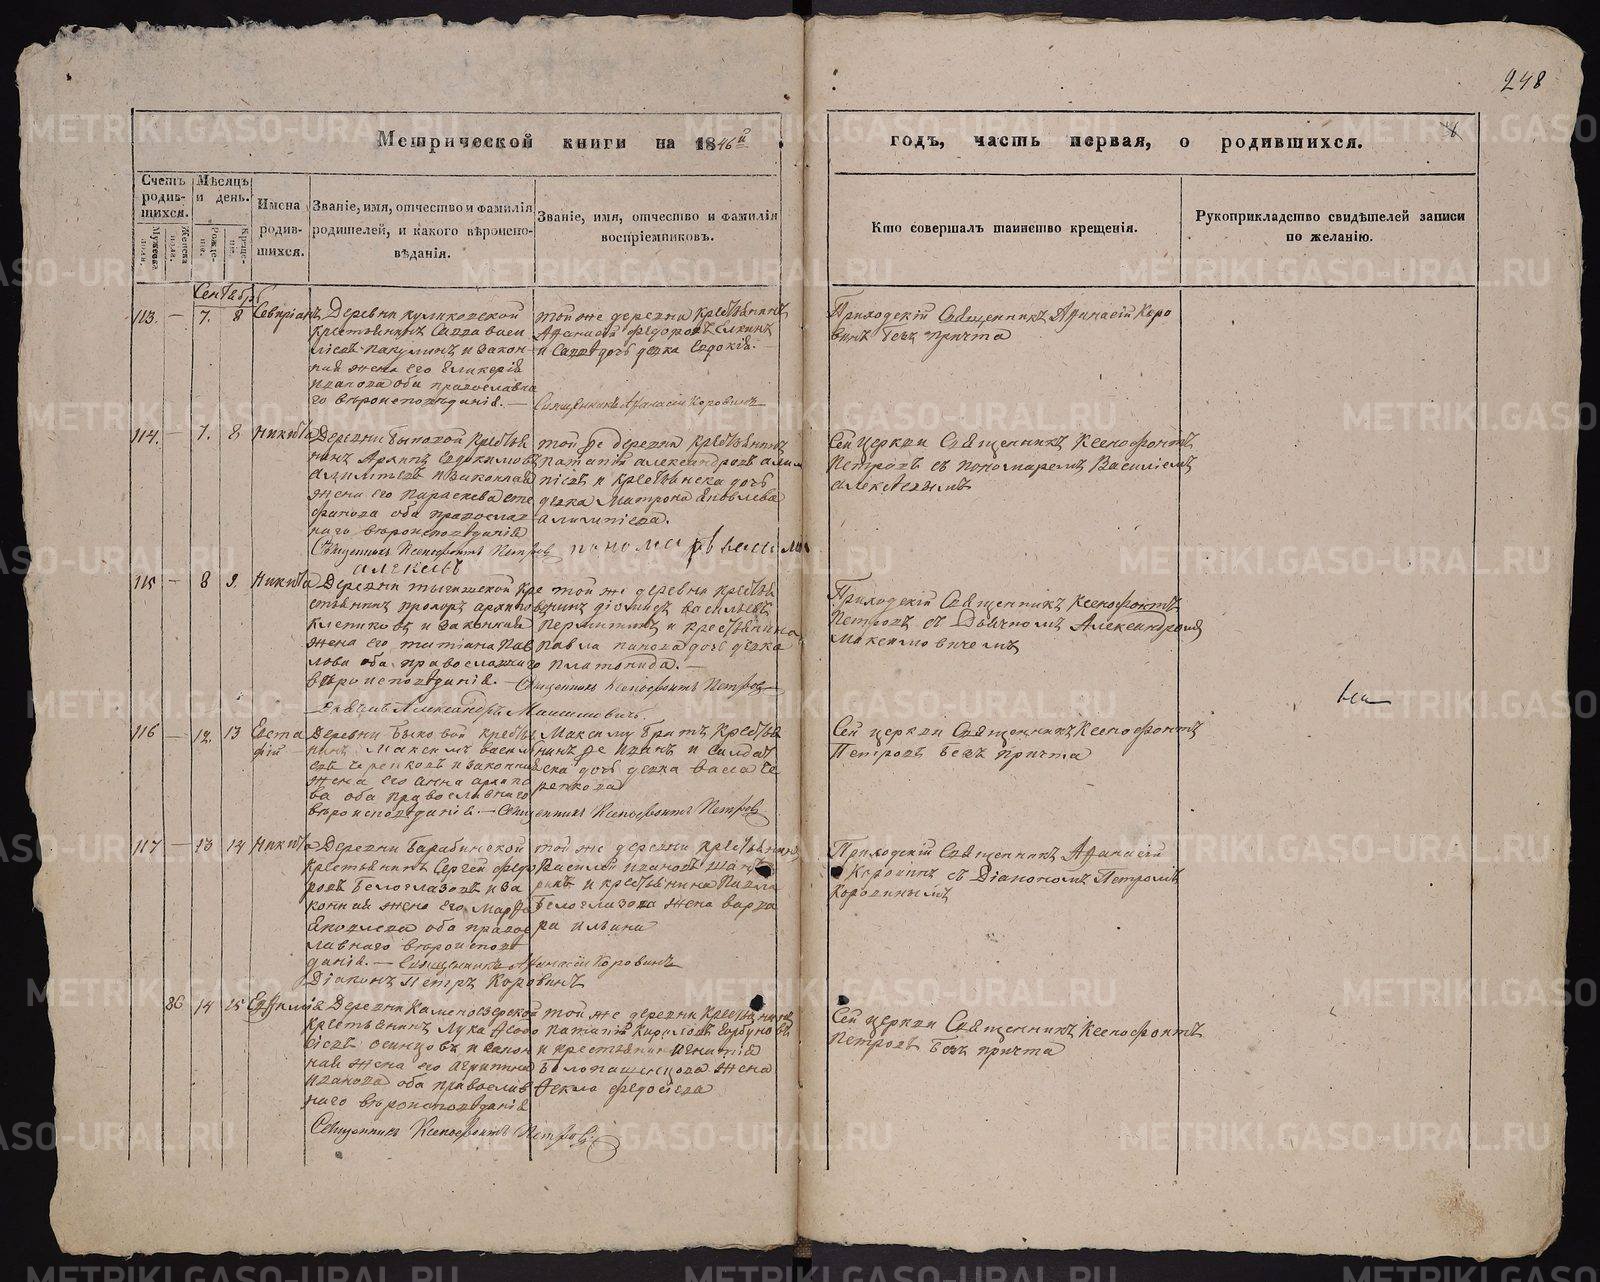 248
Метрической книги на 1846й
годъ, часть первая, о родившихся.
Счетъ родив-шихся.
Мужеска пола.
Женска пола.
Мѣсяцъ и день.
Рожде-нія.
Креще-нія.
Имена родив-шихся.
Званіе, имя, отчество и фамилія родителей, и какого вѣроиспо-вѣданія.
Званіе, имя, отчество и фамилія воспріемниковъ.
Кто совершалъ таинство крещенія.
Рукоприкладство свидѣтелей записи по желанію.
Сентабрь
113. — 7. 8 Севиріанъ
Деревни куликовской
крестьянинъ Савва васи
лиевъ и закон-
ная жена его Гликерія
иванова оба православна
го вѣроисповѣданія. —
той же деревни крестьянинъ
Афанасій федоровъ
и дочь девка Евдокія. —
Священникъ Афанасій Коровинъ
Приходскій Священникъ Афанасій Коро
винъ безъ причта
114. — 7. 8 Никита
Деревни быковой крестья
нинъ Архипъ Евдокимовъ
и законная
жена его параскева сте
фанова оба православ
наго вѣроисповѣданія
Священникъ Ксенофонтъ Петровъ
той же деревни крестьянинъ
патапій александровъ
и крестьянска дочь
девка Матрона Яковлева
пономарь васили
алекѣевъ
Сей церкви Священникъ Ксенофонтъ
Петровъ съ пономаремъ Василіемъ
алексѣевымъ
115 — 8 9. Никита
Деревни тыгишской кре
стьянинъ прохоръ архипо
и законная
жена его татіана пав
лова оба православнаго
вѣроисповѣданія. —
той же деревни крестья
нинъ діомидъ васильевъ
и крестьянина
павла панова дочь девка
платонида. —
Священникъ Ксенофонтъ Петровъ
Александръ Максимовичъ
Приходскій Священникъ Ксенофонтъ
Петровъ съ Дьячкомъ Александромъ
Максимовичемъ
116 — 12. 13 Евста
фій
Деревни быковой крестья
нинъ Максимъ васил
евъ черепковъ и законная
жена его анна архипо
ва оба православнаго
вѣроисповѣданія. —
Максиму братъ крестья
нинъ же иванъ и солдат
ска дочь девка васса че
репкова
Священникъ Ксенофонтъ Петровъ
Сей церкви Священникъ Ксенофонтъ
Петровъ безъ причта
117 — 13 14 Никита
Деревни барабинской
крестьянинъ Сергей федо
ровъ Белоглазовъ и за
конная жена его Марфа
Яковлева оба право
славнаго вѣроисповѣ
данія. — Священникъ Афанасій Коровинъ
Діаконъ Петръ Коровинъ
той же деревни крестьянинъ
Василій ивановъ
и крестьянина павла
Белоглазова жена варва
ра ильина
Приходскій Священникъ Афанасій
Коровинъ съ Діакономъ Петромъ
Коровинымъ
86 14 15 Евфимія
Деревни Каменоозерской
крестьянинъ Лука
осинцовъ и закон
ная жена его агрипина
иванова оба православ
наго вѣроисповѣданія
Священникъ Ксенофонтъ Петровъ.
той же деревни крестьянинъ
патапій Кириловъ Горбуновъ
и крестьянина игнатія
Белопашенцова жена
Фекла федосѣева
Сей церкви Священникъ Ксенофонтъ
Петровъ безъ причта
METRIKI.GASO-URAL.RU